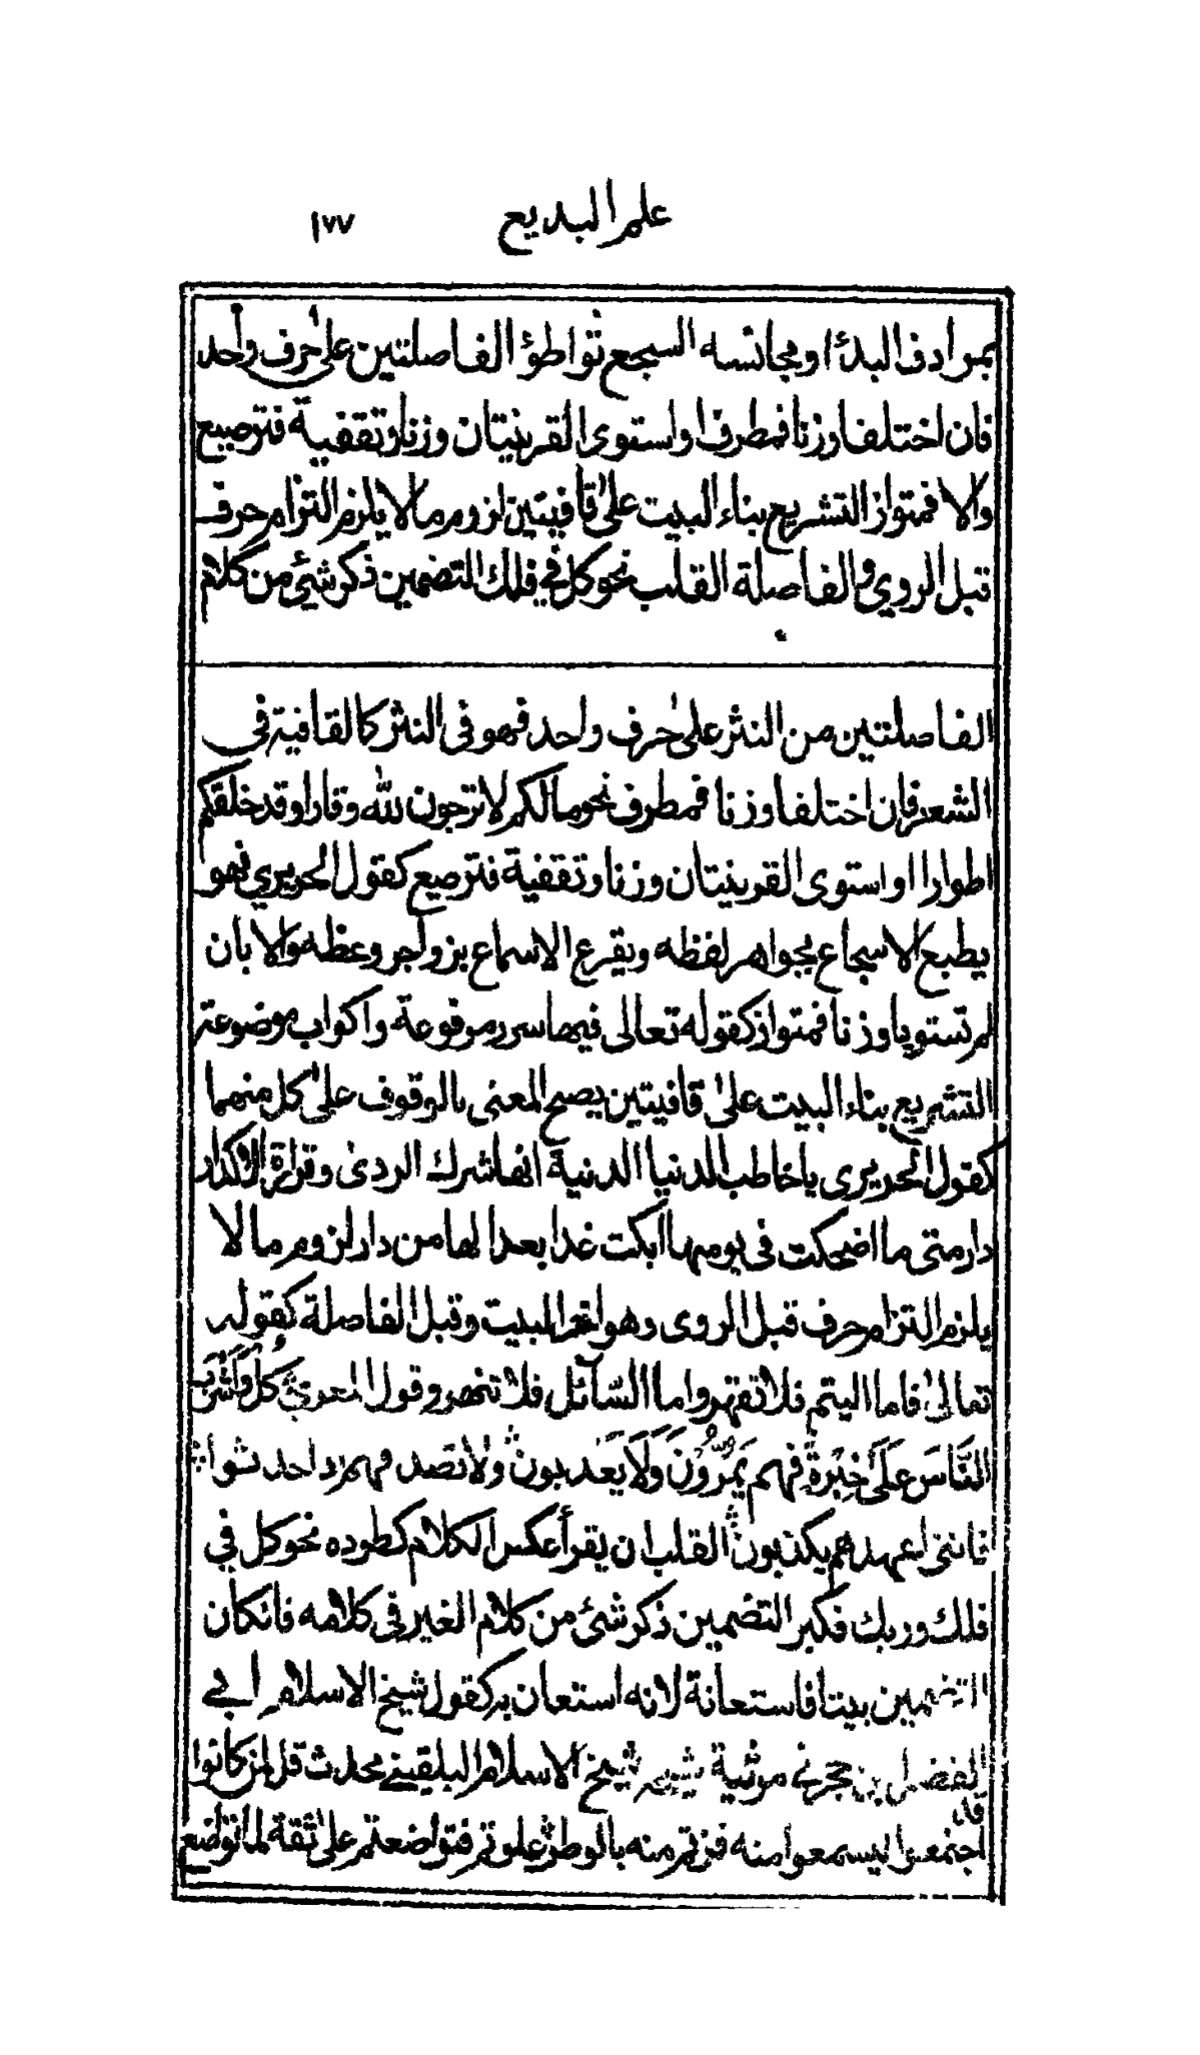 علم البديع ١٧٧
بمرادف البدئ او مجانسه السجع تواطؤ الفاصلتين على حرف واحد
فان اختلفا وزنا فمطرف او استوى القرينتان وزنا وتقفية فترصيع
والا فمتواز التشريع بناء البيت على قافيتين لزوم ما لا يلزم التزام حرف
قبل الروي والفاصلة القلب نحو كل في فلك التضمين ذكر شئ من كلام
الفاصلتين من النثر على حرف واحد فهو فى النثر كالقافية فى
الشعر فان اختلفا وزنا فمطرف نحو مالكم لا ترجون لله وقارا وقد خلقكم
اطوارا او استوى القرينتان وزنا وتقفية فترصيع كقول الحريري فهو
يطبع الاسجاع بجواهر لفظه ويقرع الاسماع بزواجر وعظه والا بان
لم تستويا وزنا فمتواز كقوله تعالى فيها سرر مرفوعة واكواب موضوعة
التشريع بناء البيت على قافيتين يصح المعنى بالوقوف على كل منهما
كقول الحريرى يا خاطب الدنيا الدنية انها شرك الردى وقرارة الاكدار
دار متى ما اضحكت فى يومها ابكت غدا بعدا لها من دار لزوم ما لا
يلزم التزام حرف قبل الروى وهو اخر البيت وقبل الفاصلة كقوله
تعالى فاما اليتيم فلا تقهر واما السّآئل فلا تنهر وقول المعري كُلْ وَاشْرَب
النَّاسَ عَلَى خِبْرَةٍ فهم يَمُرُّونَ وَلَا يَعْذبون ولا تصد فهم
فاننى اعهدهم يكذبون القلب ان يقرأ عكس الكلام كطوده نحو كل في
فلك وربك فكبر التضمين ذكر شئ من كلام الغير فى كلامه فان كان
التضمين بيتا فاستعانة لانه استعان به كقول شيخ الاسلام ابي
الفضل بن حجر في مرثية شيخه شيخ الاسلام البلقيني محدث قل لمن كانوا
قد
اجتمعوا ليسمعوا منه فزتم منه بالوطر علوتم فتواضعتم على ثقة لما تواضع